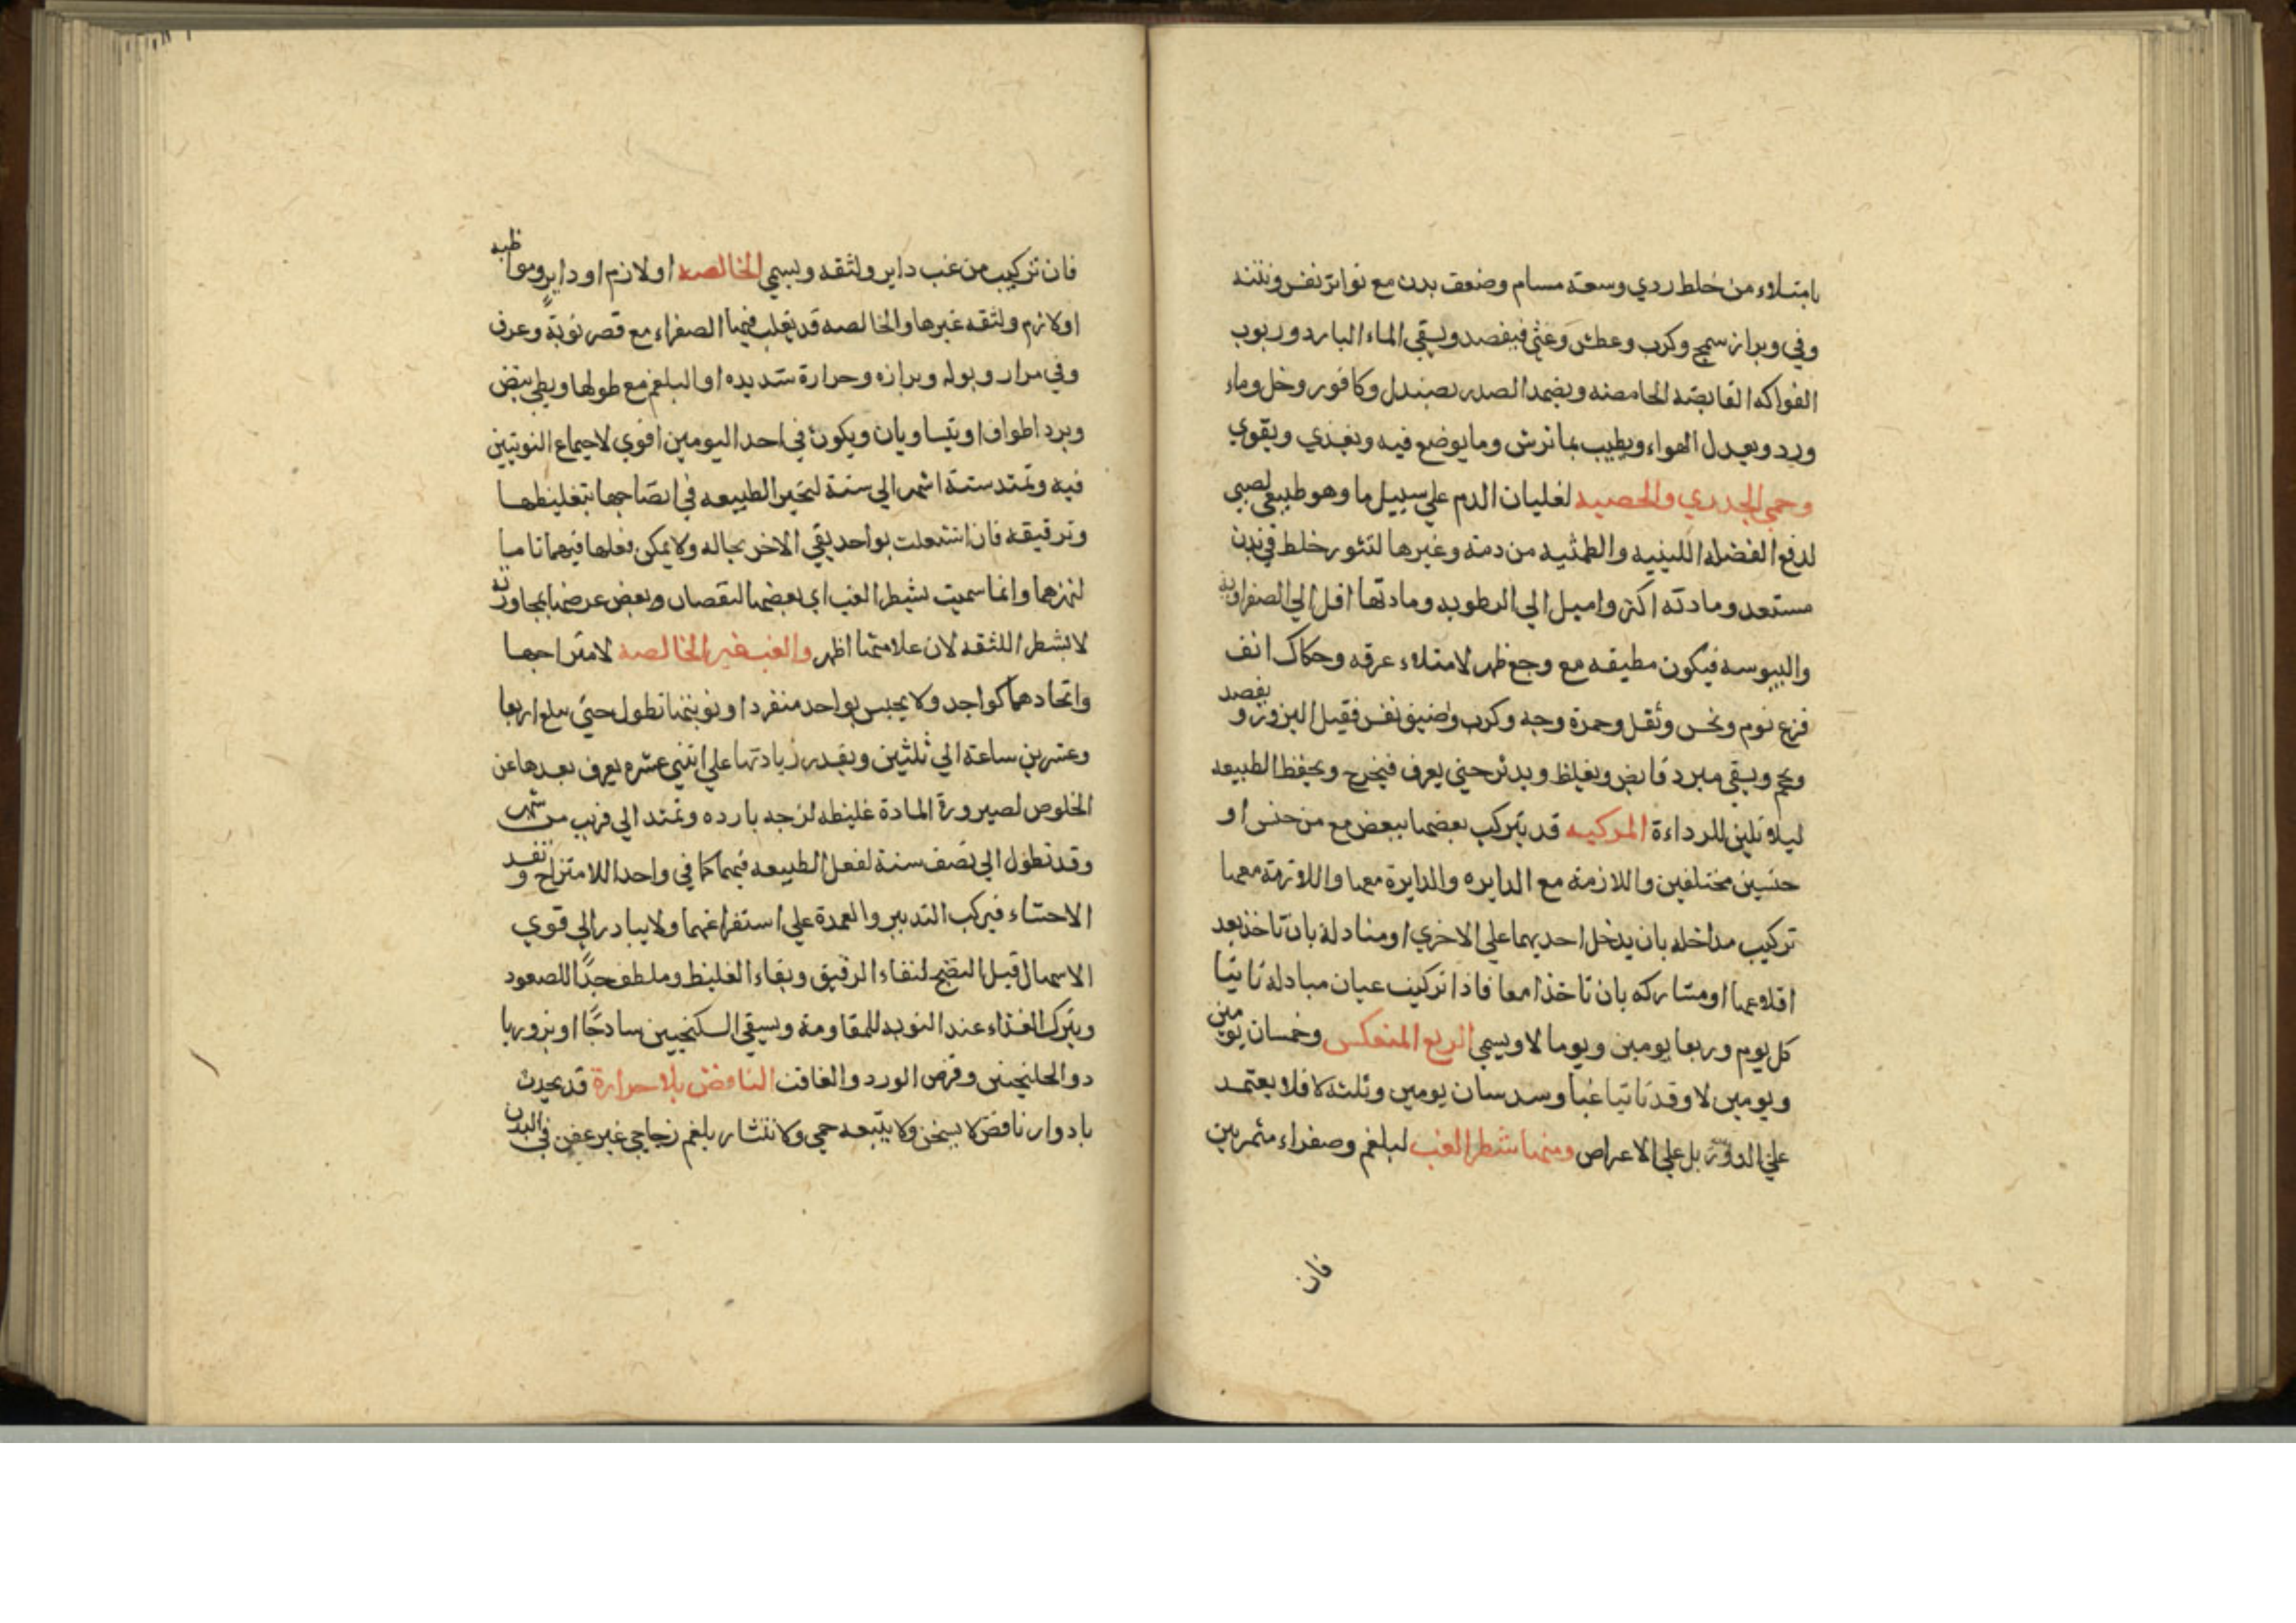 بامتلاء من خلط ردي وسعة مسام وضعف بدن مع تواتر نفس ونتنه
وقي وبراز سمج وكرب وعطش وغشي فيفصد ويسقي الماء البارد وربوب
الفواكه القابضه الحامضه ويضمد الصدر بصندل وكافور وخل وماء
ورد ويعدل الهواء ويطيب بما ترش وما يوضع فيه ويغذي ويقوي
وحمي الجدري والحصبه لغليان الدم علي سبيل ما وهو طبيعي لصبي
لدفع الفضله اللبنيه والطمثيه من دمه وغيرها لتثور خلط في بدن
مستعد ومادته اكثر واميل الي الرطوبه ومادتها اقل الي الصفراويه
واليبوسه فيكون مطبقه مع وجع ظهر لامتلاء عرقه وحكاك انف
فزع نوم ونخس وثقل وحمرة وجه وكرب وضيق نفس فقبل البروز يفصد و
ويحجم ويسقي مبرد قابض ويغلظ ويدثر حتي يعرق فيخرج ويحفظ الطبيعه
ليلا تلين للرداءة المركبه قد يتركب بعضها ببعض مع من جنس او
جنسين مختلفين واللازمة مع الدايره والدايرة معها واللازمة معها
تركيب مداخله بان يدخل احديهما علي الاخري او مبادلة بان تاخذ بعد
اقلاعها او مشاركه بان تاخذا معا فاذا تركب غبان مبادلة تاتيا
كل يوم وربعا يومين ويوما لا ويسمي الربع المنعكس وخمسان يومين
ويومين لا وقد تاتيا غبا وسدسان يومين وثلثه لا فلا يعتمد
علي الدور بل علي الاعراض ومنها شطر الغب لبلغم وصفراء مثمرين
فان
فان تركب من غب داير ولثقه ويسمي الخالصه او لازم او داير ومواظبه
او لازم ولثقه غيرها والخالصه قد يغلب فيها الصفراء مع قصر نوبة وعرق
وقي مرار وبوله وبرازه وحرارة شديده او البلغم مع طولها وبطي نبض
وبرد اطراف او يتساويان ويكون في احد اليومين اقوي لاجتماع النوبتين
فيه وتمتد ستة اشهر الي سنة لتحير الطبيعه في انضاجها بتغليظها
وترقيقه فان اشتعلت بواحد بقي الاخر بحاله ولا يمكن فعلها فيهما تاما
وانما سميت بشطر الغب اي بعضها لنقصان وبعض عرضها بمجاورته
لا بشطر اللثقه لان علامتها اظهر والغب غير الخالصه لامتزاجها
واتحادهما كواحد ولا يحبس بواحد منفردا ونوبتها تطول حتي يبلغ اربعا
وعشرين ساعة الي ثلثين وبقدر زيادتها علي اثني عشره يعرف بعدها عن
الخلوص لصيرورة المادة غليظه لزجه بارده وتمتد الي قريب من شهر
وقد تطول الي نصف سنة لفعل الطبيعه فيهما كما في واحد اللامتزاج وتفسد
الاحشاء فيركب التدبير والعمدة علي استفراغهما ولا يبادر الي قوي
الاسهال قبل النضج لنفاء الرقيق وبقاء الغليظ وملطف جدا للصعود
ويترك الغذاء عند النوبه للمقاومة ويسقي السكنجبين ساذجا او بزوريا
والجلنجبين وقرص الورد والغافت النافض بلا حرارة قد يحدث
بادوار نافض لا يسخن ولا يتبعه حمي ولا نتشار بلغم زجاجي غير عفن في البدن